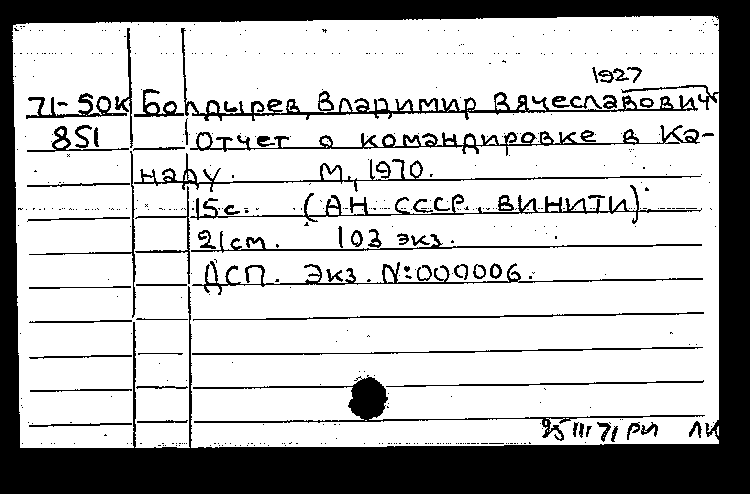 1927
71-50К Болдырев, Владимир Вячеславович
851 Отчет о командировке в Ка-
наду. М., 1970.
15с. (АН СССР. ВИНИТИ).
21см. 103 экз.
ДСП. Экз. №:000006.
25 III 71 РИ ЛИ